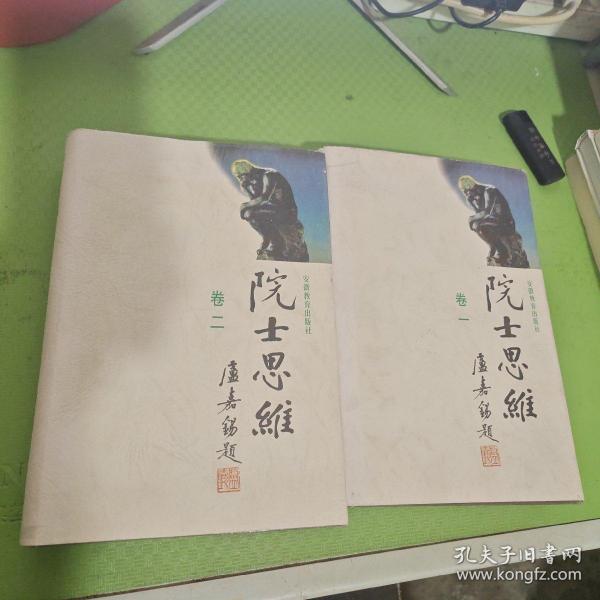 院士思維
卷二
安徽教育出版社
盧嘉錫題
院士思維
卷一
安徽教育出版社
盧嘉錫題
孔夫子旧书网
www.kongfz.com